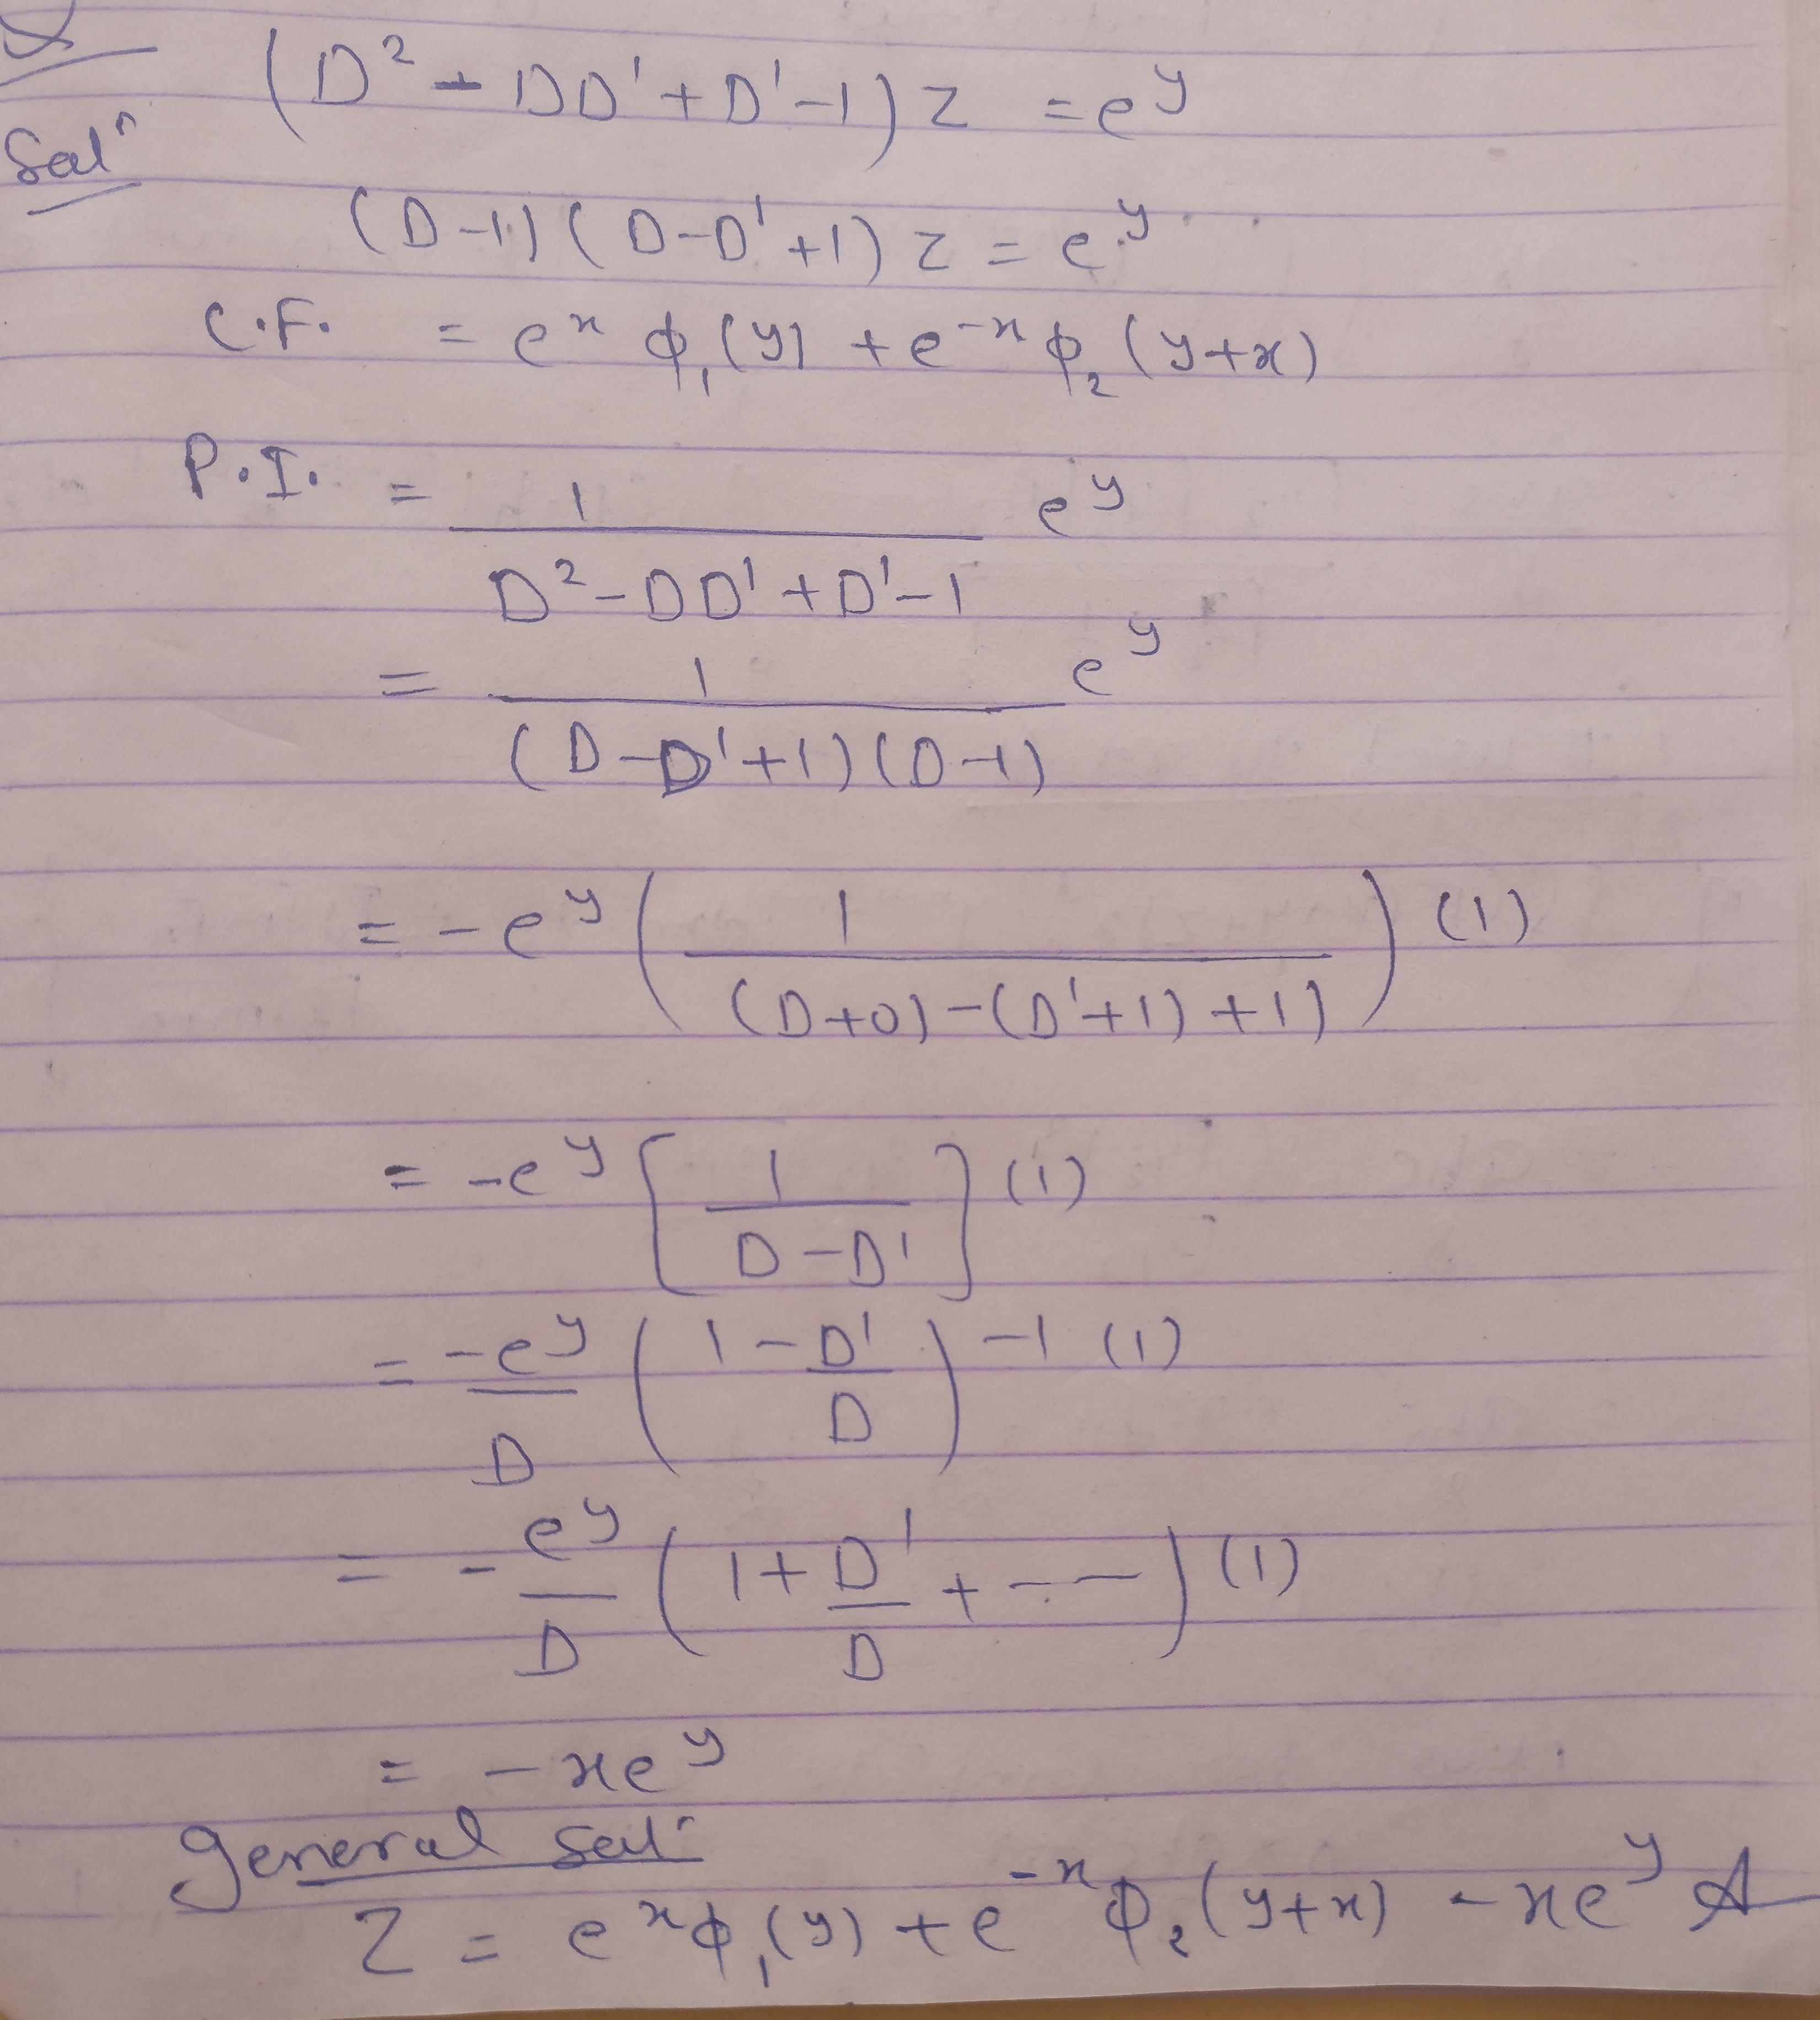 Q
(D² - DD' + D' - 1) z = e^y
Solⁿ
(D-1) (D-D'+1) z = e^y
C.F. = e^x ϕ₁(y) + e^-x ϕ₂(y+x)
P.I. = 1/(D² - DD' + D' - 1) e^y
= 1/((D-D'+1)(D-1)) e^y
= -e^y (1/((D+0) - (D'+1) + 1)) (1)
= -e^y [1/(D-D')] (1)
= -e^y/D (1 - D'/D)^-1 (1)
= -e^y/D (1 + D'/D + ---) (1)
= -xe^y
General Solⁿ
Z = e^x ϕ₁(y) + e^-x ϕ₂(y+x) - xe^y A